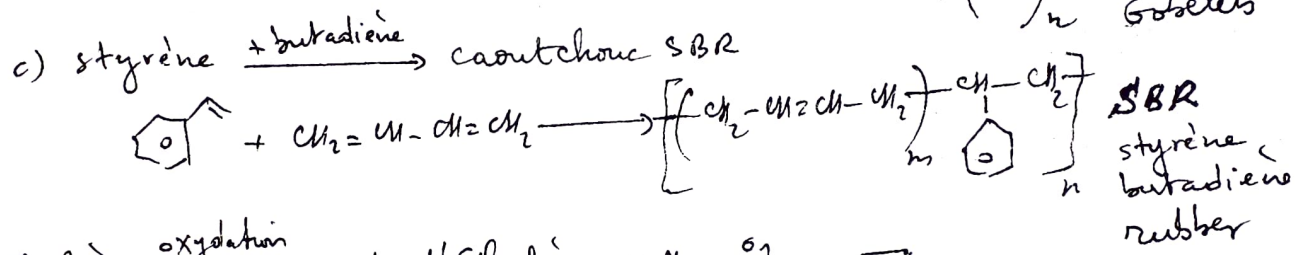 )n Gobelets
c) styrène + butadiène → caoutchouc SBR
+ CH2 = CH - CH = CH2 → [( CH2 - CH = CH - CH2 )m CH - CH2 ]n SBR
styrène
butadiène
rubber
oxydation